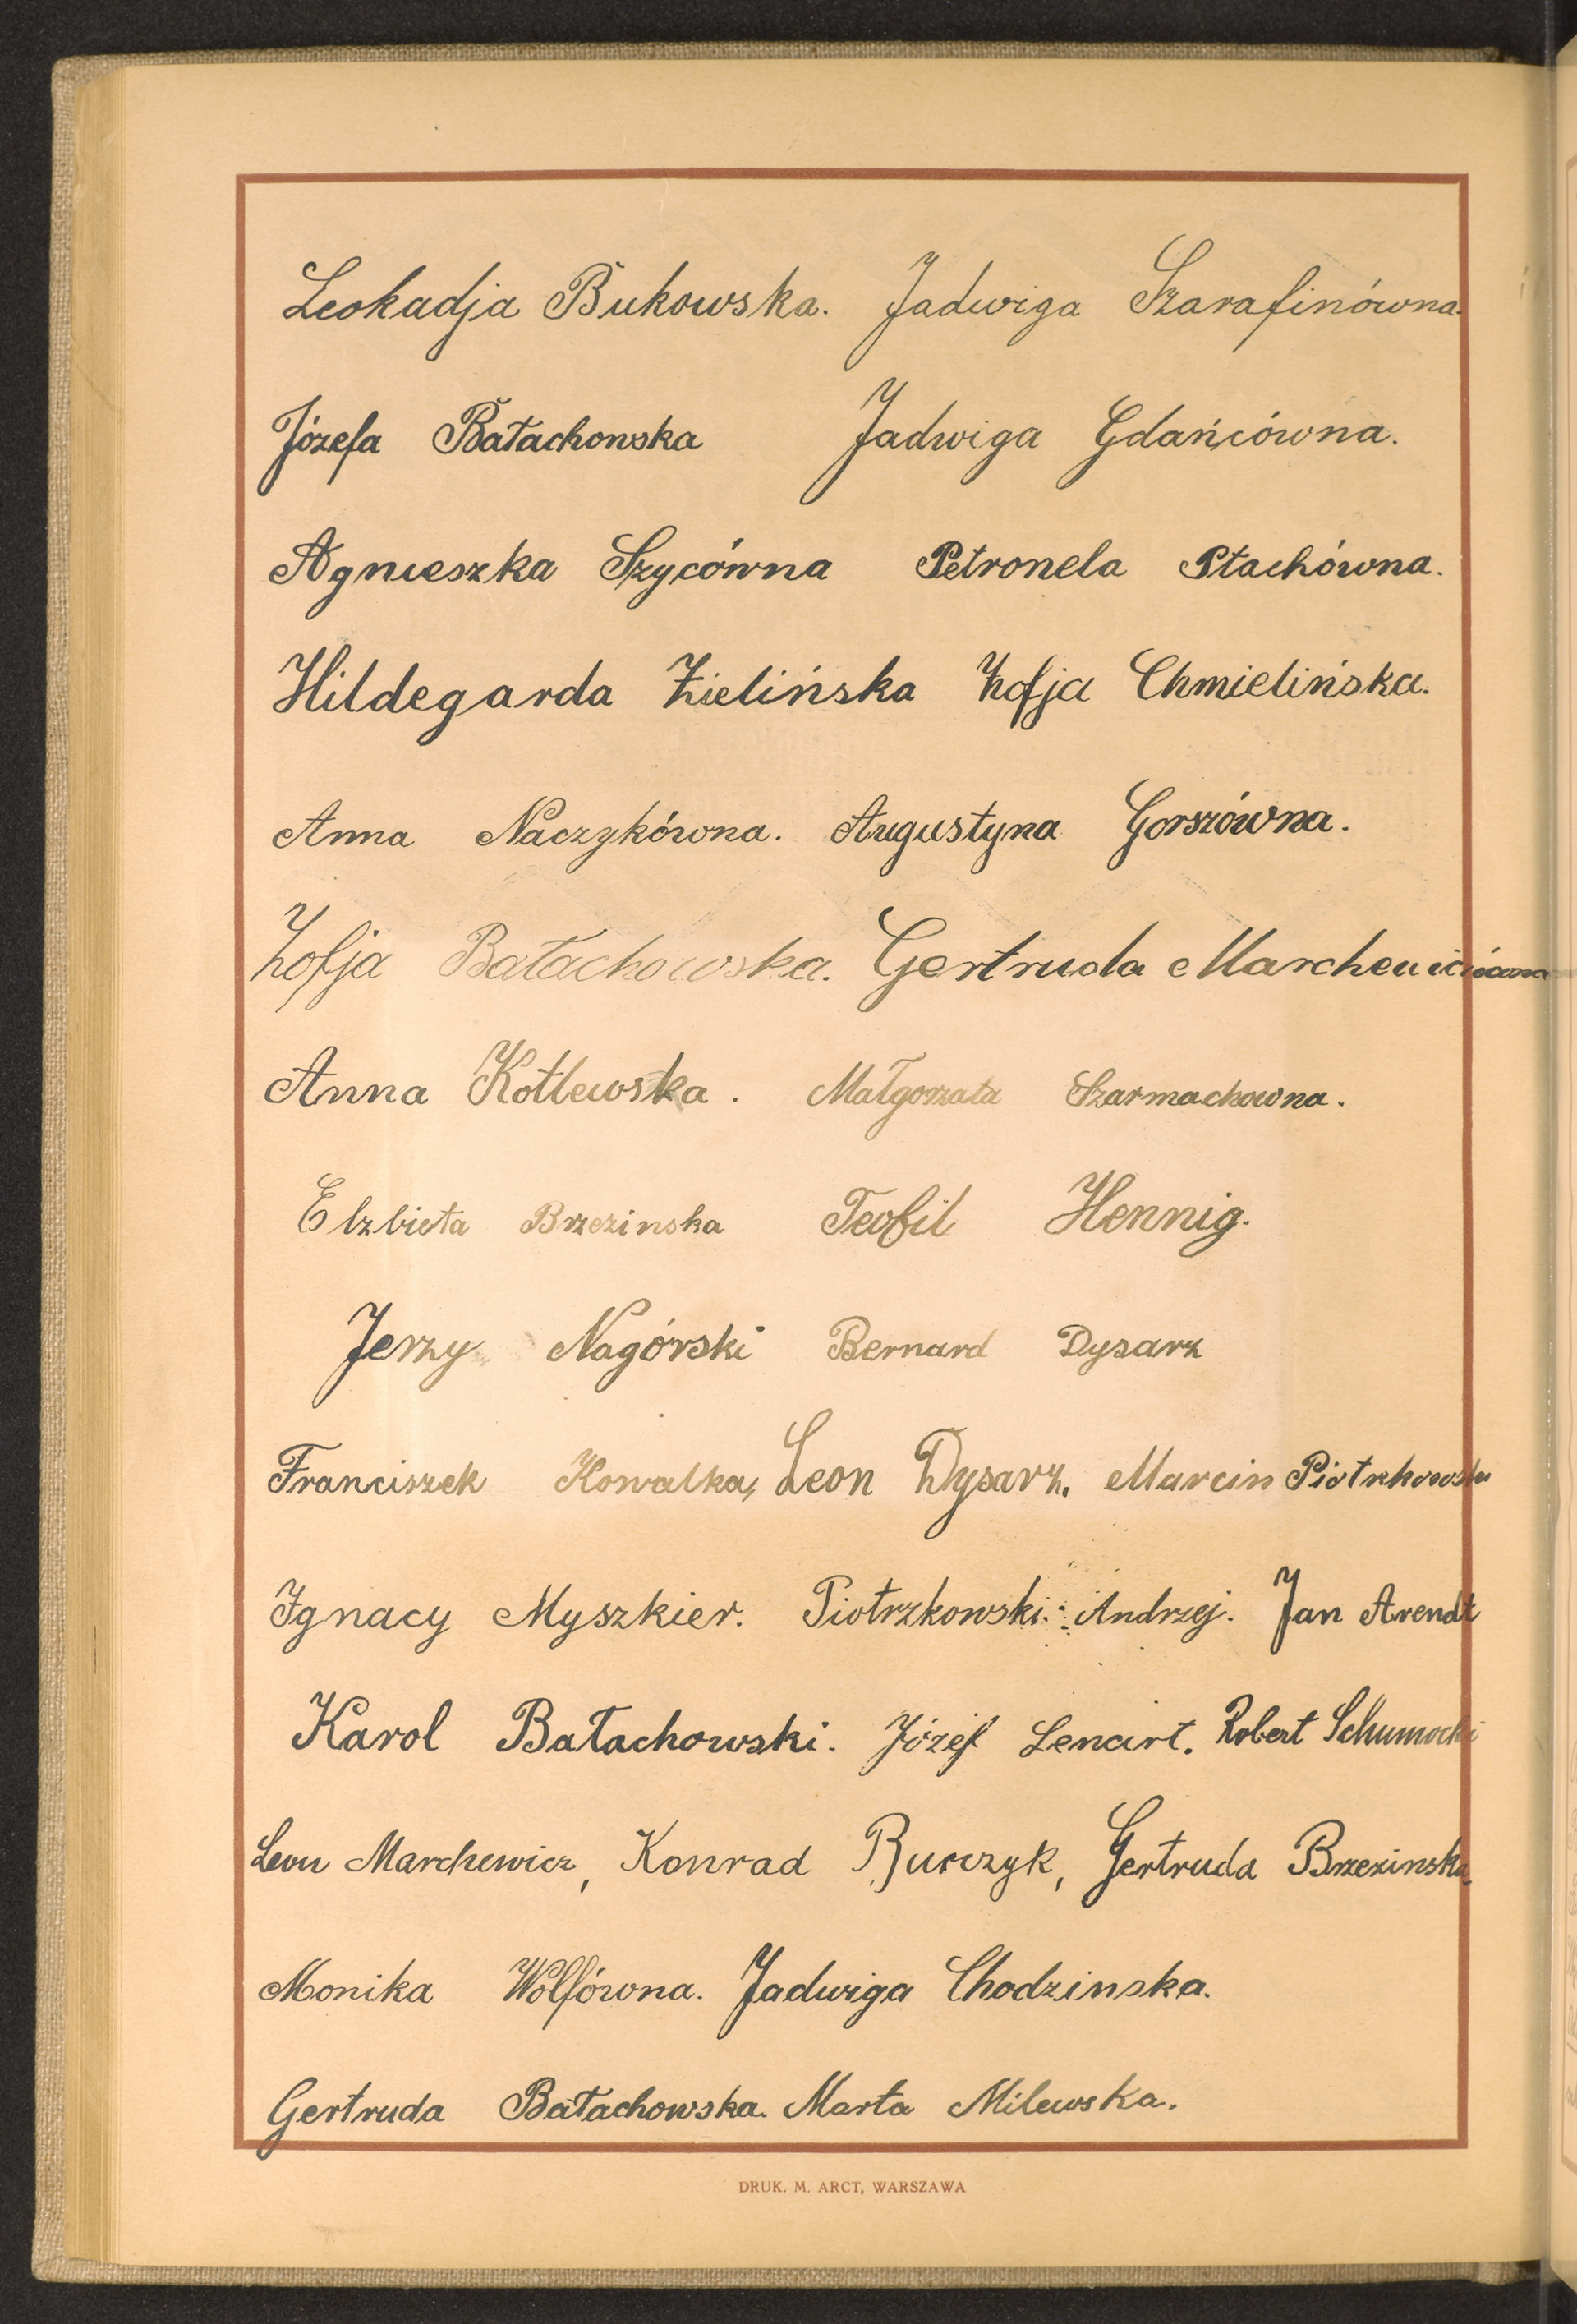 Leokadja Bukowska. Jadwiga Szarafinówna.
Józefa Bałachowska Jadwiga Gdańcówna.
Agnieszka Szycówna Petronela Ptachówna.
Hildegarda Zielińska Zofja Chmielińska.
Anna Naczykówna. Augustyna Gorszówna.
Zofja Bałachowska. Gertruda Marchewiczówna
Anna Kotlewska. Małgorzata Szarmachowna.
Elzbieta Brzezinska Teofil Hennig.
Jerzy Nagórski Bernard Dysarz
Franciszek Kowalka, Leon Dysarz. Marcin Piotrkowski
Ignacy Myszkier. Piotrzkowski. Andrzej. Jan Arendt
Karol Bałachowski. Józef Lenart. Robert Schumocki
Leon Marchewicz, Konrad Burczyk, Gertruda Brzezinska.
Monika Wolfówna. Jadwiga Chodzinska.
Gertruda Bałachowska. Marta Milewska.
DRUK. M. ARCT, WARSZAWA